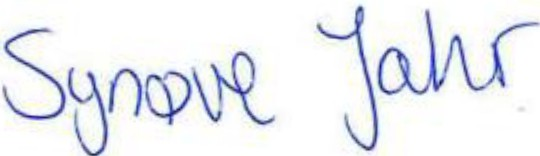 Synøve Jahr